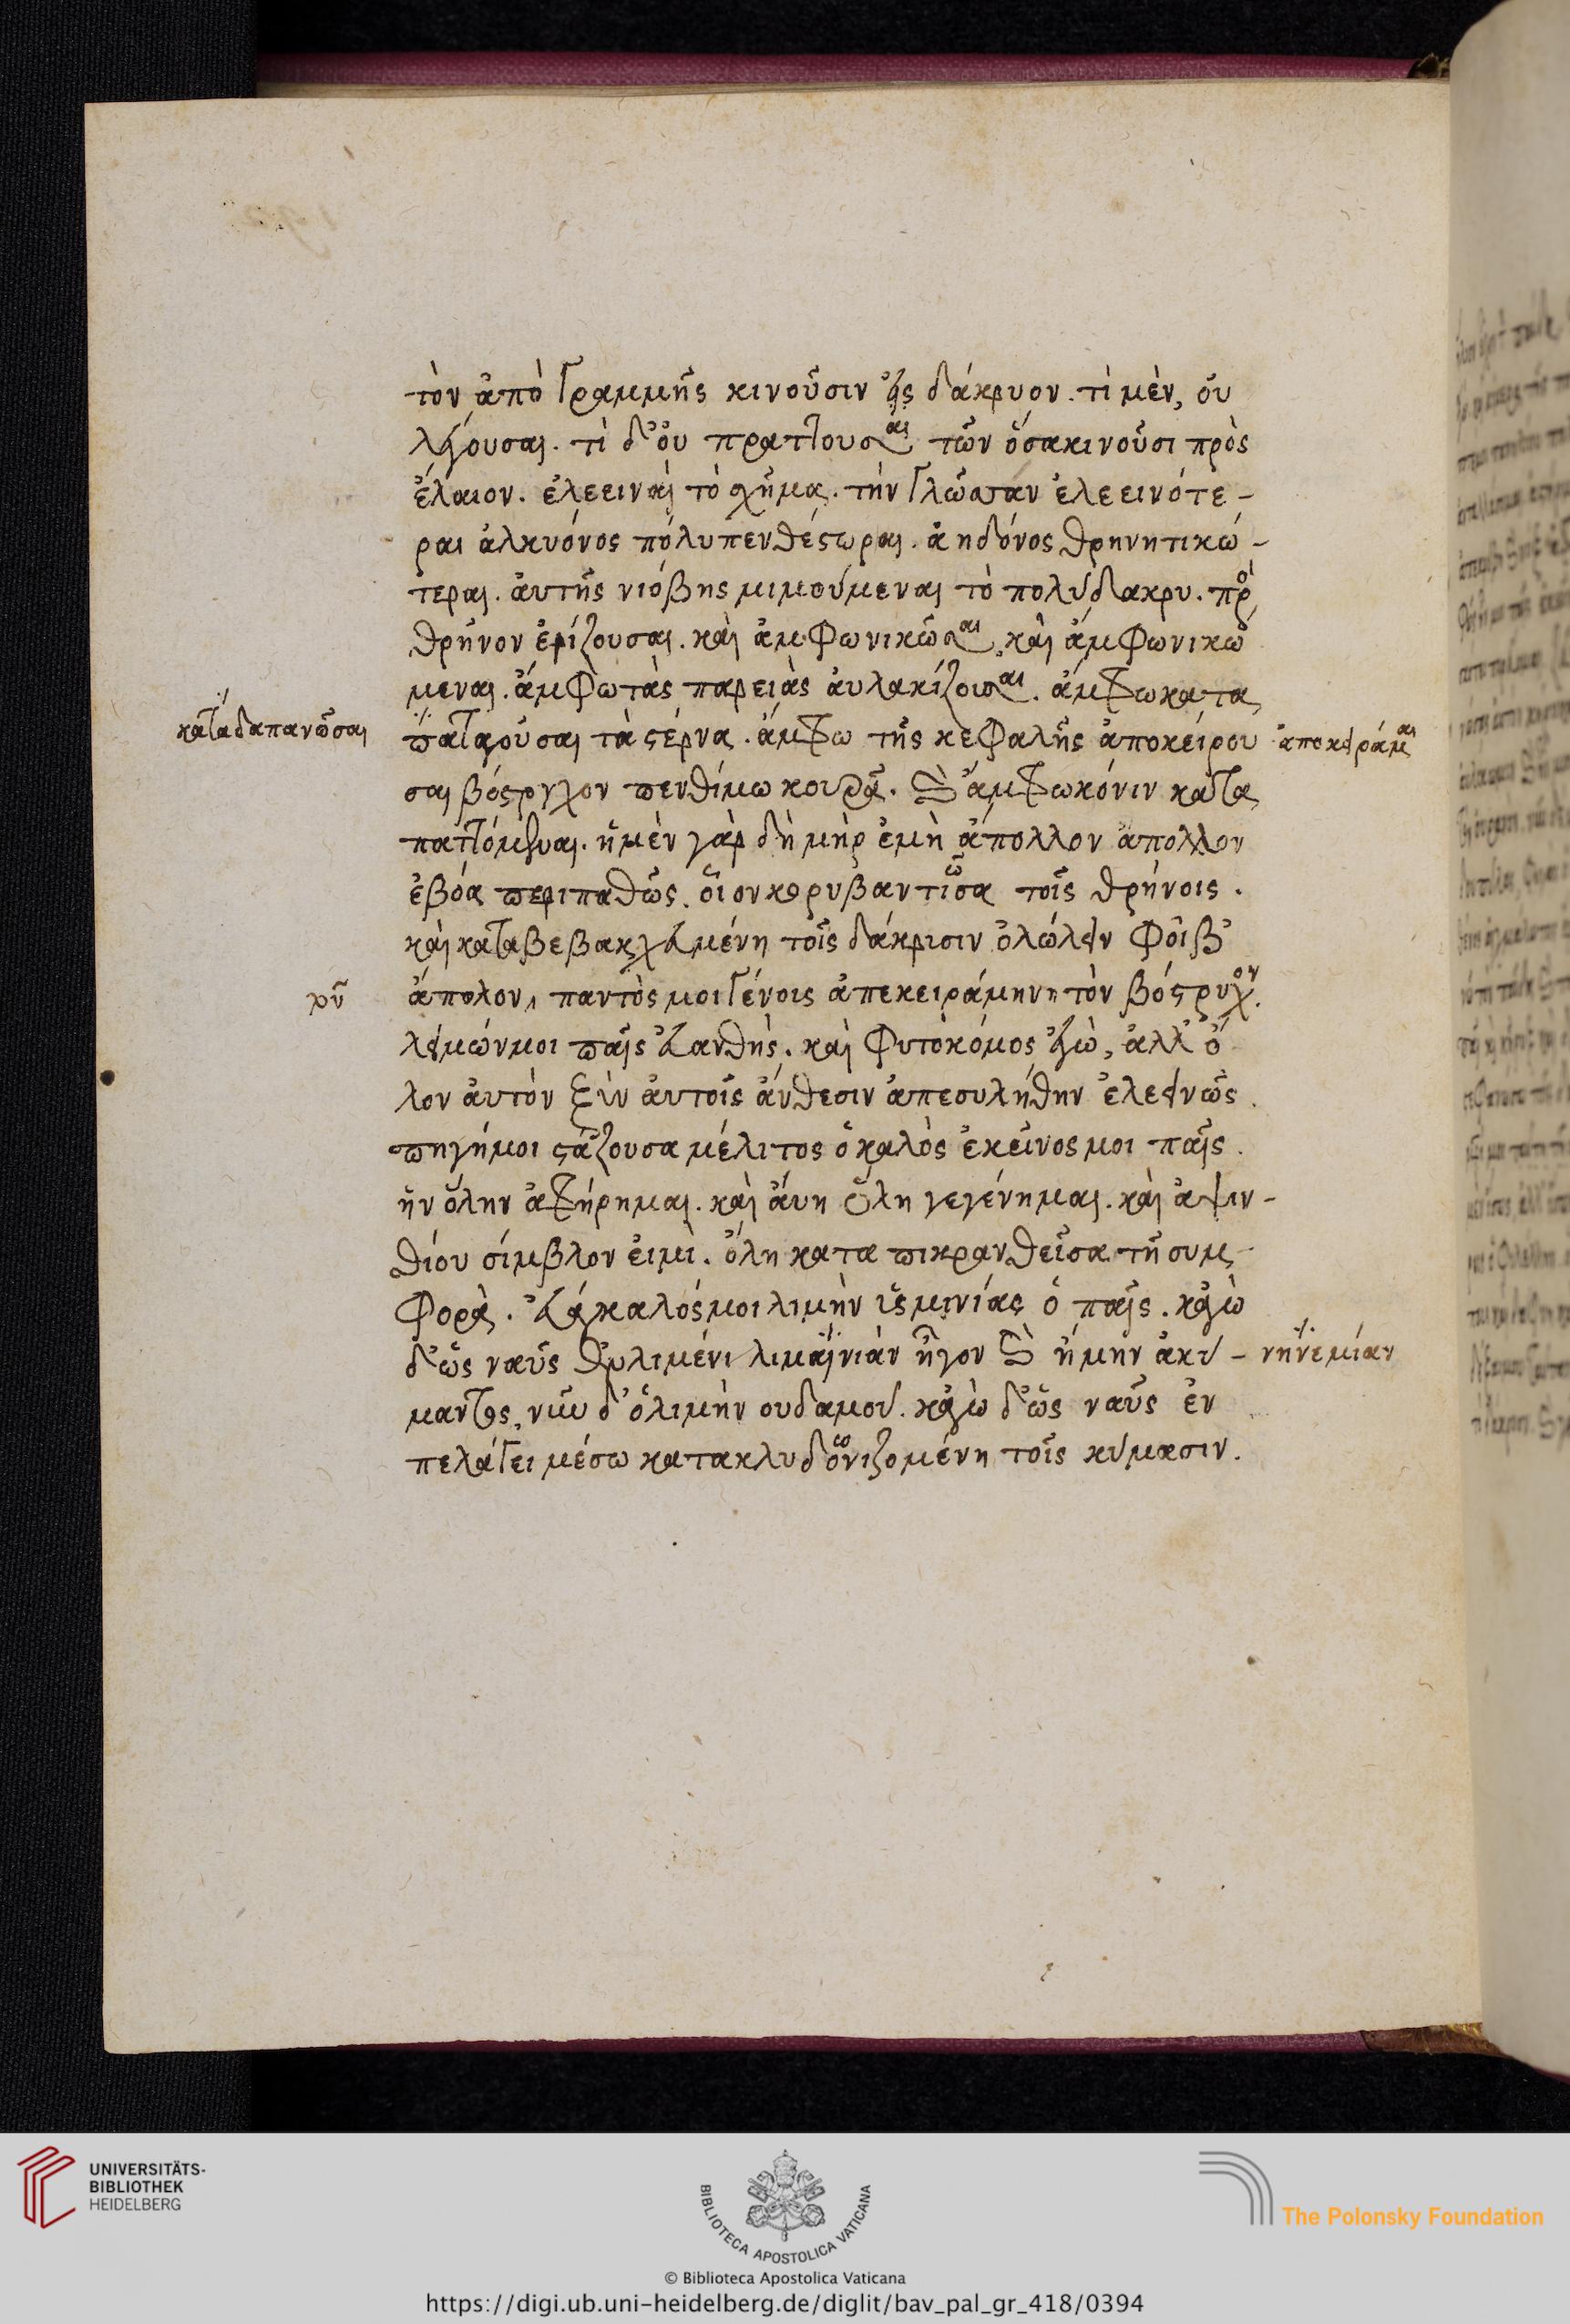 τὸν ἀπὸ γραμμῆς κινοῦσιν εἰς δάκρυον. τί μὲν, οὐ
λέγουσαι. τί δ' οὐ πράττουσαι τῶν ὅσα κινοῦσι πρὸς
ἔλαιον. ἐλεειναὶ τὸ σχῆμα. τὴν γλῶσσαν ἐλεεινότε-
ραι ἀλκυόνος πολυπενθέστωραι. ἀηδόνος θρηνητικώ-
τεραι. αὐτῆς νιόβης μιμούμεναι τὸ πολύδακρυ. πρὸ
θρῆνον ἐρίζουσαι. καὶ ἄμφω νικῶσαι, καὶ ἄμφω νικώ
μεναι. ἄμφω τὰς παρειὰς αὐλακίζουσαι. ἄμφω κατα
κατὰδαπανῶσαι
παταγοῦσαι τὰ στέρνα. ἄμφω τῆς κεφαλῆς ἀποκείρου
ἀποκειράμεναι
σαι βόστρυχον πενθίμω κουρᾶ. καὶ ἄμφω κόνιν κατα
παττόμεναι. ἡ μὲν γὰρ δὴ μήτηρ ἐμὴ ἄπολλον ἄπολλον
ἐβόα περιπαθῶς. οἷον κορυβαντιῶσα τοῖς θρήνοις.
καὶ καταβεβακχευμένη τοῖς δάκρισιν ὀλώλειν φοῖβ'
χρυ
ἄπολον, παντὸς μοι γένοις ἀπεκειράμην τὸν βόστρυχον.
λειμών μοι παῖς εὐανθὴς. καὶ φυτοκόμος ἐγὼ, ἀλλ' ὅ
λον αὐτὸν ξὺν αὐτοῖς ἄνθεσιν ἀπεσυλήθην ἐλεεινῶς.
πηγή μοι στάζουσα μέλιτος ὁ καλὸς ἐκεῖνος μοι παῖς.
ἣν ὅλην ἀφήρημαι. καὶ αὔη ὅλη γεγένημαι. καὶ ἀψιν-
θίου σίμβλον εἰμὶ. ὅλη καταπικρανθεῖσα τῆ συμ-
φορὰ. εὔγαλός μοι λιμὴν ἰσμινίας ὁ παῖς. κἀγὼ
δ' ὡς ναῦς ἐν λιμένι λιμαινιὰν ἦγον καὶ ἤμην ἀκύ-
νηνεμίαν
μαντος, νῦν δ' ὁ λιμὴν ουδαμοῦ. κἀγὼ δ' ὡς ναῦς ἐν
πελάγει μέσω κατακλυδωνιζομένη τοῖς κύμασιν.
UNIVERSITÄTS-
BIBLIOTHEK
HEIDELBERG
BIBLIOTECA APOSTOLICA VATICANA
The Polonsky Foundation
© Biblioteca Apostolica Vaticana
https://digi.ub.uni-heidelberg.de/diglit/bav_pal_gr_418/0394